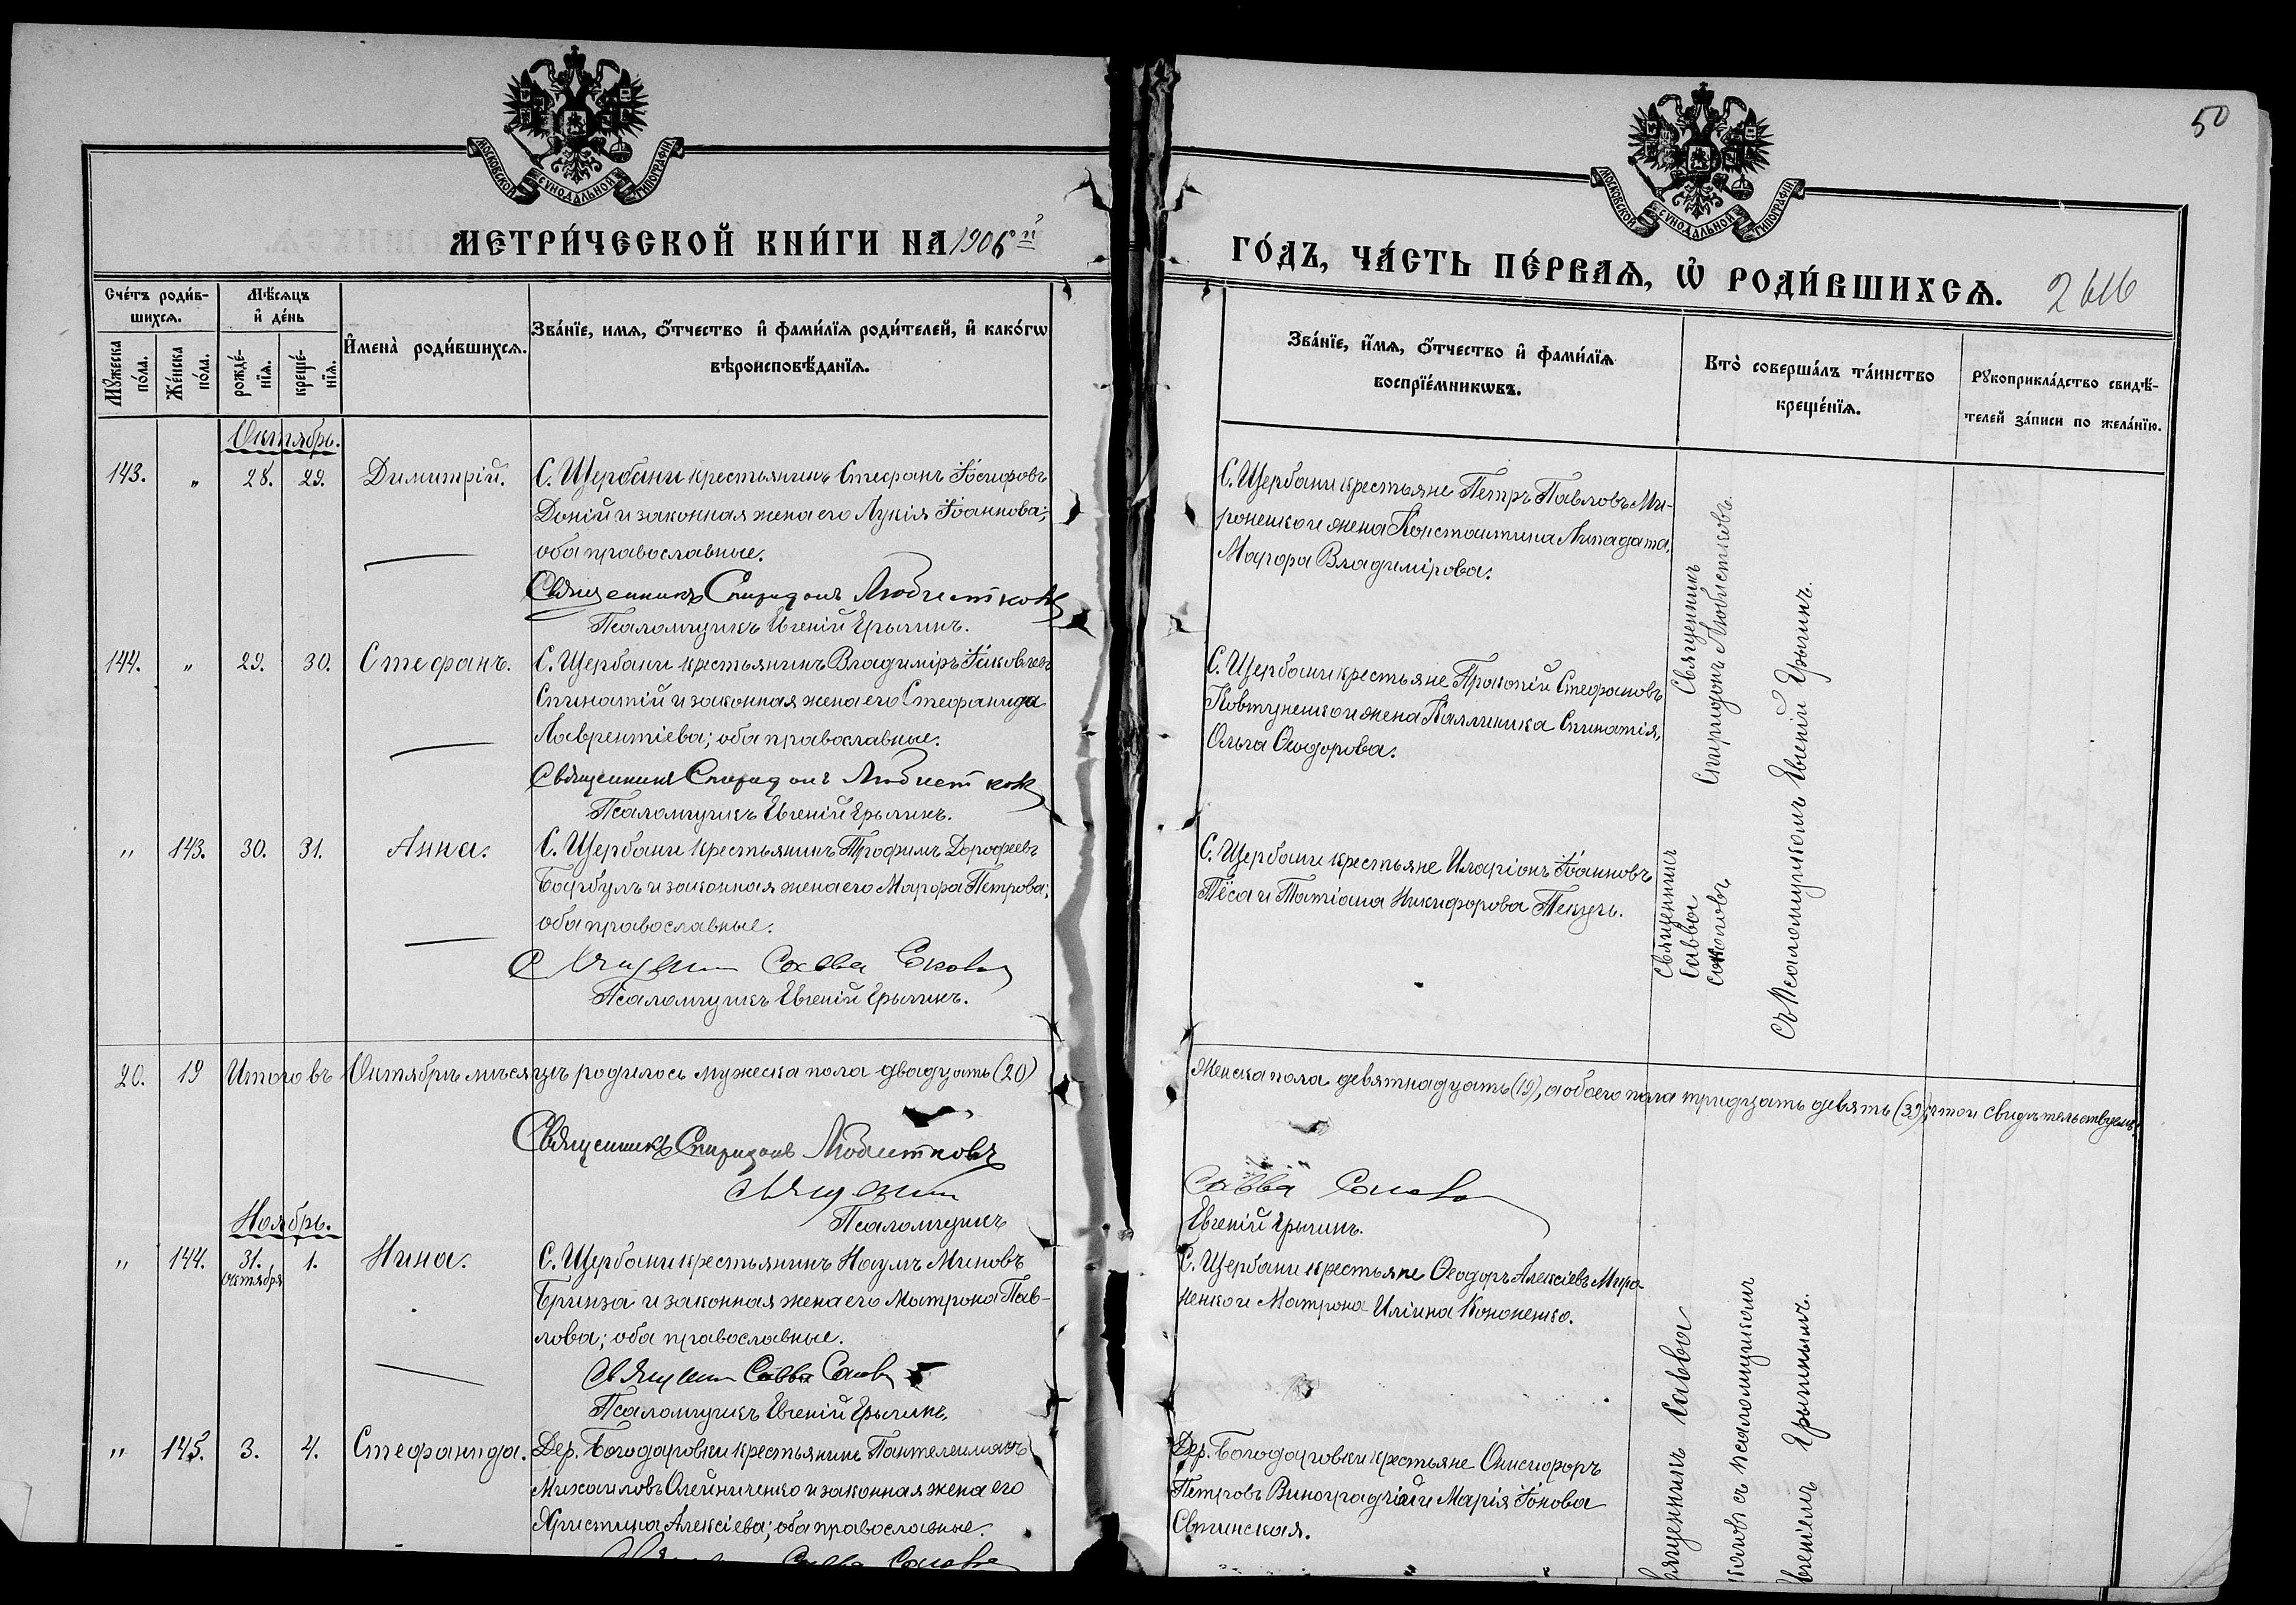 50
МОСКОВСКОЙ СѴНОДАЛЬНОЙ ТИПОГРАФІИ
МОСКОВСКОЙ СѴНОДАЛЬНОЙ ТИПОГРАФІИ
МЕТРИ́ЧЕСКОЙ КНИ́ГИ НА 1906й
ГО́ДЪ, ЧА́СТЬ ПЕ́РВАЯ, Ѡ РОДИ́ВШИХСЯ.
Сче́тъ роди́в-
шихся.
Мѣ́сяцъ
и де́нь
Мꙋ́жеска по́ла.
Же́нска по́ла.
рожде́-нїя.
креще́-нїя.
Имена̀ роди́вшихся.
Зва́нїе, имя, о́тчество и фами́лїя роди́телей, и како́гѡ
вѣроисповѣ́данїя.
Зва́нїе, и́мя, о́тчество и фами́лїя
воспрїе́мникѡвъ.
Кто̀ соверша́лъ та́инство
креще́нїя.
Рꙋкоприкла́дство свидѣ́-
телей за́писи по жела́нїю.
Октябрь.
143. „ 28. 29. Димитрій. С. Щербани крестьянинъ Стефанъ Іосифовъ
Доній и законная жена его Лукія Іоаннова;
оба православные.
Священникъ Спиридонъ Любистковъ
Псаломщикъ Евгеній Ерыгинъ.
С. Щербани крестьяне Петръ Павловъ Ми-
роненко и жена Константина Липадата,
Марфа Владимірова.
144. „ 29. 30. Стефанъ. С. Щербани крестьянинъ Владиміръ Іаковлевъ
Спинатій и законная жена его Стефанида
Лаврентіева; оба православные.
Священникъ Спиридонъ Любистковъ
Псаломщикъ Евгеній Ерыгинъ.
С. Щербани крестьяне Прокопій Стефановъ
Ковтуненко и жена Каллиника Спинатія,
Ольга Ѳеодорова.
Священникъ
Спиридонъ Любистковъ.
„ 143. 30. 31. Анна. С. Щербани крестьянинъ Трофимъ Дорофеевъ
Барбулъ и законная жена его Марфа Петрова;
оба православные.
Савва
Псаломщикъ Евгеній Ерыгинъ.
С. Щербани крестьяне Иларіонъ Іоанновъ
Тёса и Татіана Никифорова Текучъ.
Священникъ
Савва
Соколовъ
съ Псаломщикомъ Евгеній Ерыгинъ.
20. 19 Итого въ Октябрѣ мѣсяцѣ родилось мужеска пола двадцать (20)
Женска пола девятнадцать (19), а обоего пола тридцать девять (39), что и свидѣтельствуемъ:
Священникъ Спиридонъ Любистковъ
Священникъ
Савва
Псаломщикъ
Евгеній Ерыгинъ.
Ноябрь.
„ 144. 31. октября 1. Нина. С. Щербани крестьянинъ Наумъ Миновъ
Бринза и законная жена его Матрона Пав-
лова; оба православные.
Священникъ Савва
Псаломщикъ Евгеній Ерыгинъ.
С. Щербани крестьяне Ѳеодоръ Алексіевъ Миро-
ненко и Матрона Иліина Кононенко.
„ 145. 3. 4. Стефанида. Дер. Богодаровки крестьянинъ Пантелеимонъ
Михаиловъ Олейниченко и законная жена его
Христина Алексіева; оба православные.
Дер. Богодаровки крестьяне Онисифоръ
Петровъ Виноградчій и Марія Іонова
Священникъ Савва
съ псаломщикомъ
Евгеніемъ Ерыгинымъ.